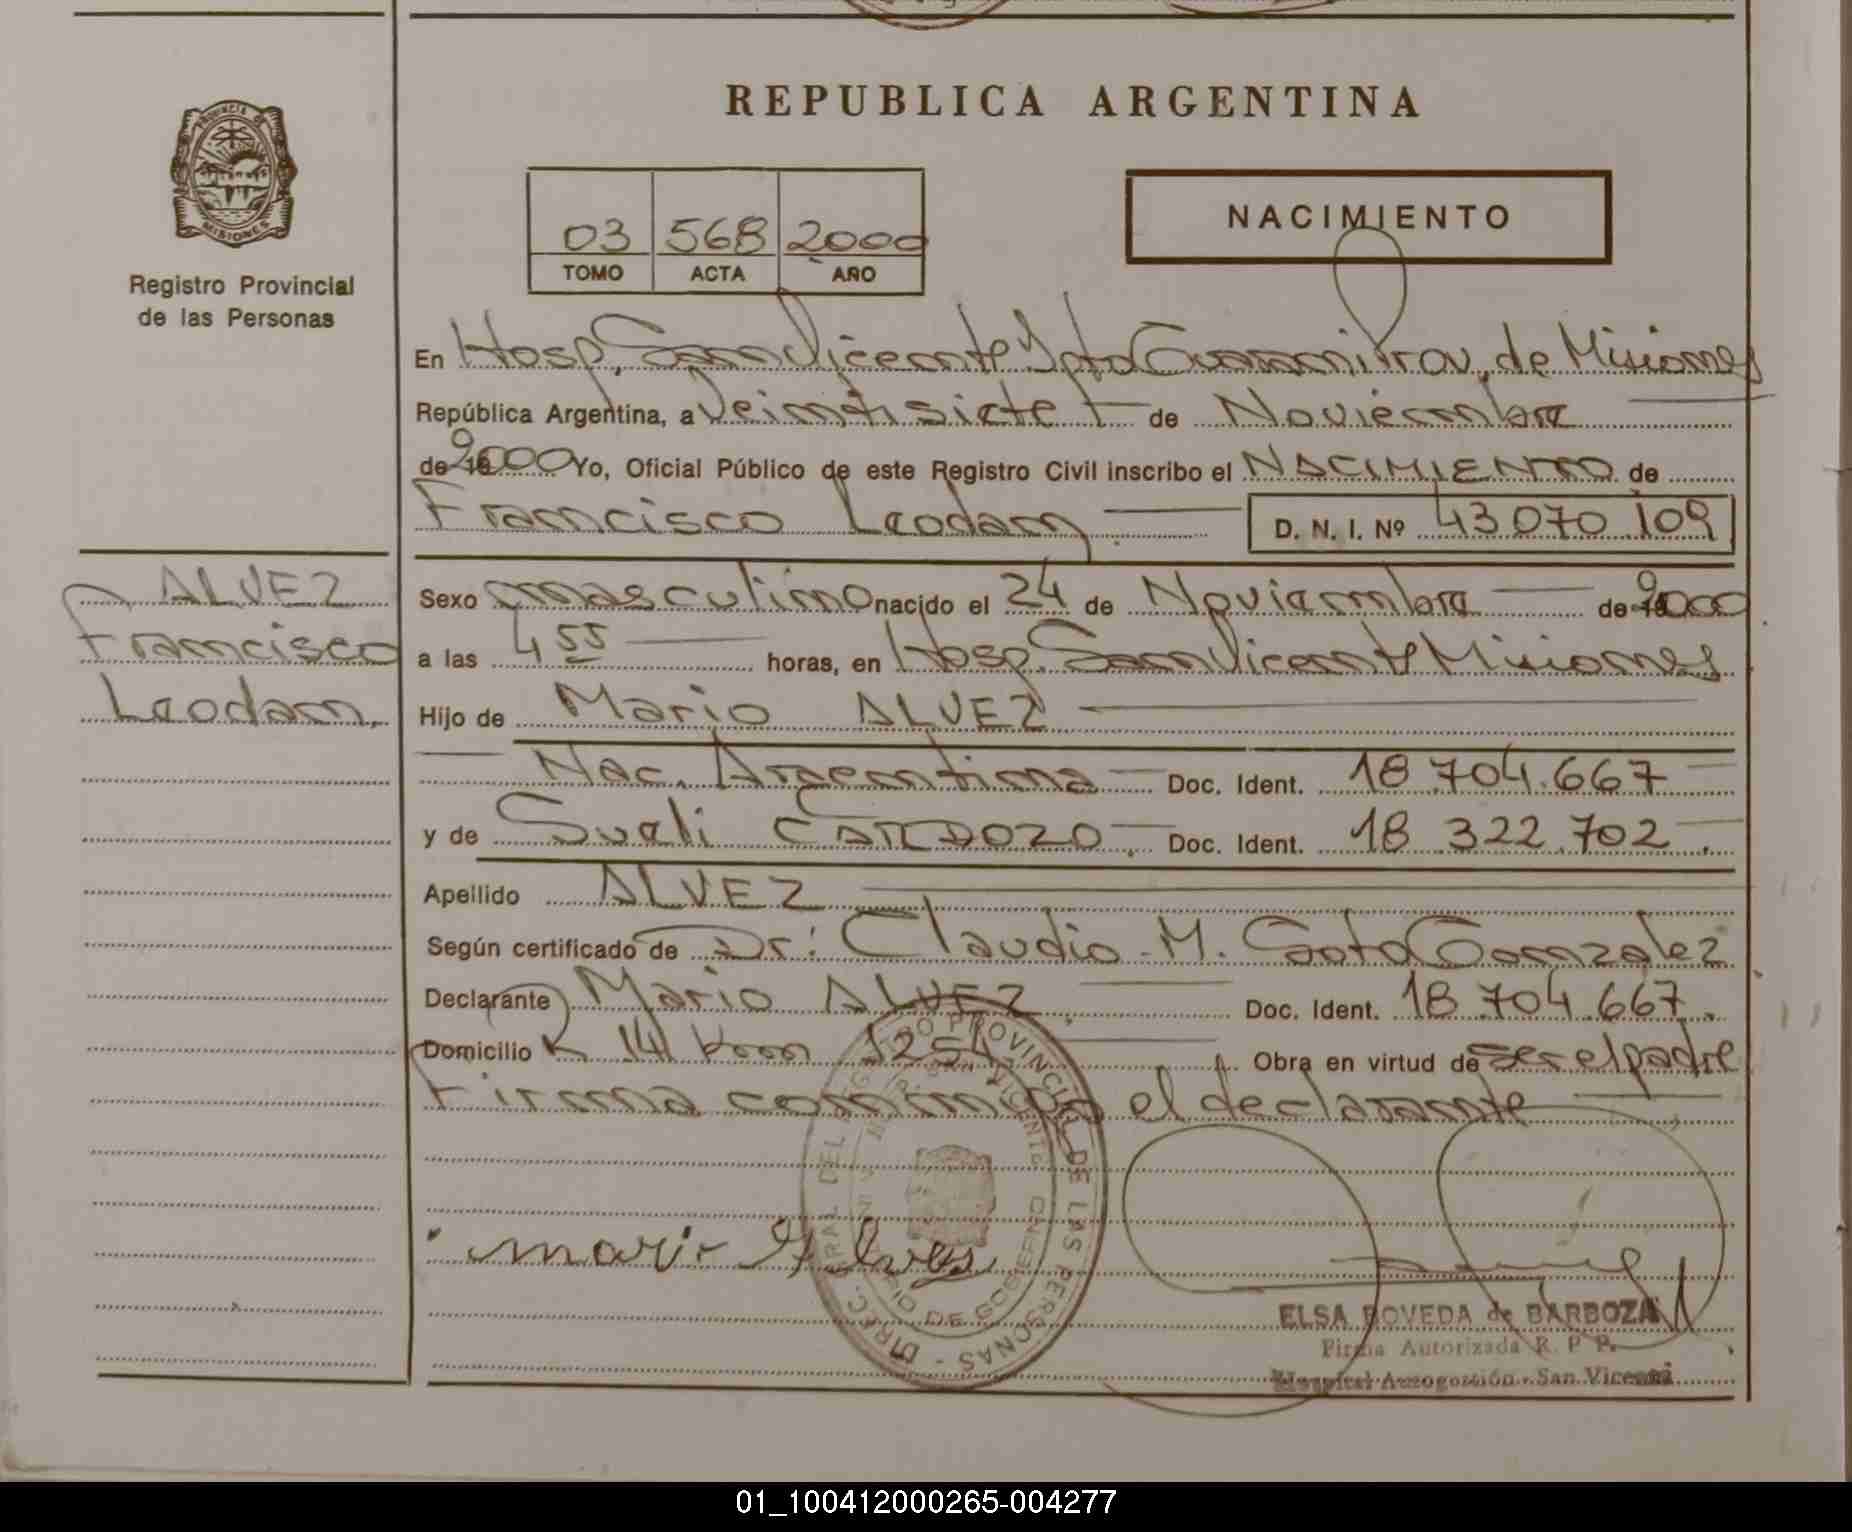 REPUBLICA ARGENTINA
PROVINCIA DE
MISIONES
Registro Provincial
de las Personas
03 568 2000
TOMO ACTA AÑO
NACIMIENTO
En Hosp. San Vicente Dpto Guaraní Prov. de Misiones
República Argentina, a Veintisiete de Noviembre
de 19 2000 Yo, Oficial Público de este Registro Civil inscribo el NACIMIENTO de
Francisco Leodan D. N. I. Nº 43 070 109
ALVEZ
Francisco
Leodan.
Sexo masculino nacido el 24 de Noviembre de 19 2000
a las 4 55 horas, en Hosp. San Vicente Misiones
Hijo de Mario ALVEZ
Nac. Argentina Doc. Ident. 18.704.667
y de Sueli CARDOZO. Doc. Ident. 18 322.702.
Apellido ALVEZ
Según certificado de Dr: Claudio M. Soto Gonzalez
Declarante Mario ALVEZ. Doc. Ident. 18.704.667.
Domicilio R 14 Km 1254. Obra en virtud de ser el padre
Firma conmigo el declarante
DIREC. GRAL DEL REGISTRO PROVINCIAL DE LAS PERSONAS
SAN VICENTE
DE GOBIERNO
mario Alves
ELSA BOVEDA de BARBOZA
Firma Autorizada R. P. P.
Hospital Autogestión - San Vicente
01_100412000265-004277